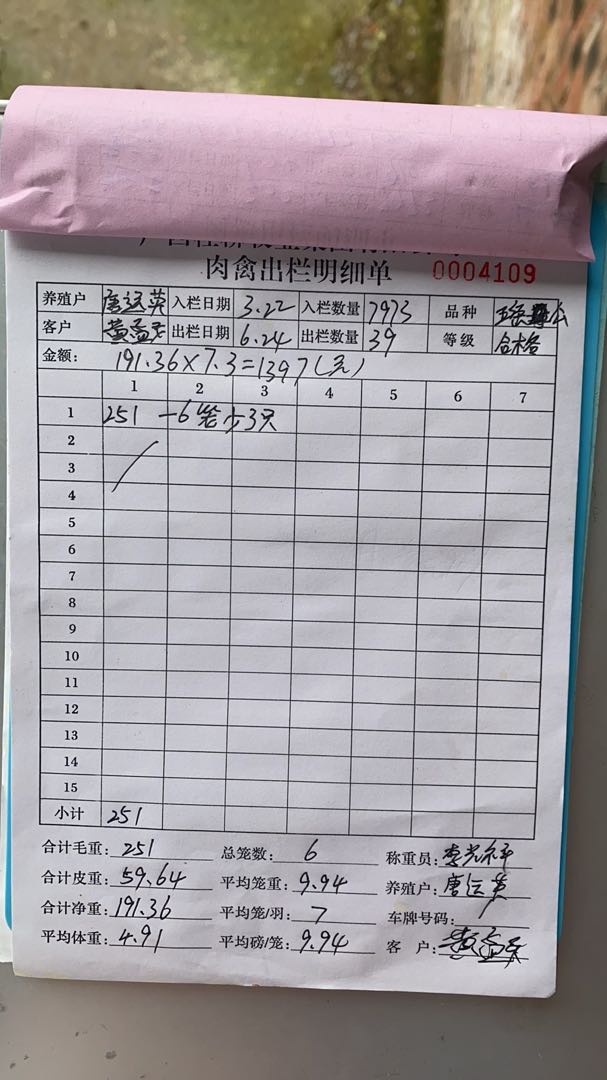 肉禽出栏明细单 0004109
养殖户 唐运英 入栏日期 3.22 入栏数量 7973 品种
客户 出栏日期 6.24 出栏数量 39 等级 合格
金额: 191.36×7.3=1397(元)
1 2 3 4 5 6 7
1 251 一6笼少3只
2
3
4
5
6
7
8
9
10
11
12
13
14
15
小计 251
合计毛重: 251 总笼数: 6 称重员: 李光祥
合计皮重: 59.64 平均笼重: 9.94 养殖户: 唐运英
合计净重: 191.36 平均笼/羽: 7 车牌号码:
平均体重: 4.91 平均磅/笼: 9.94 客 户: